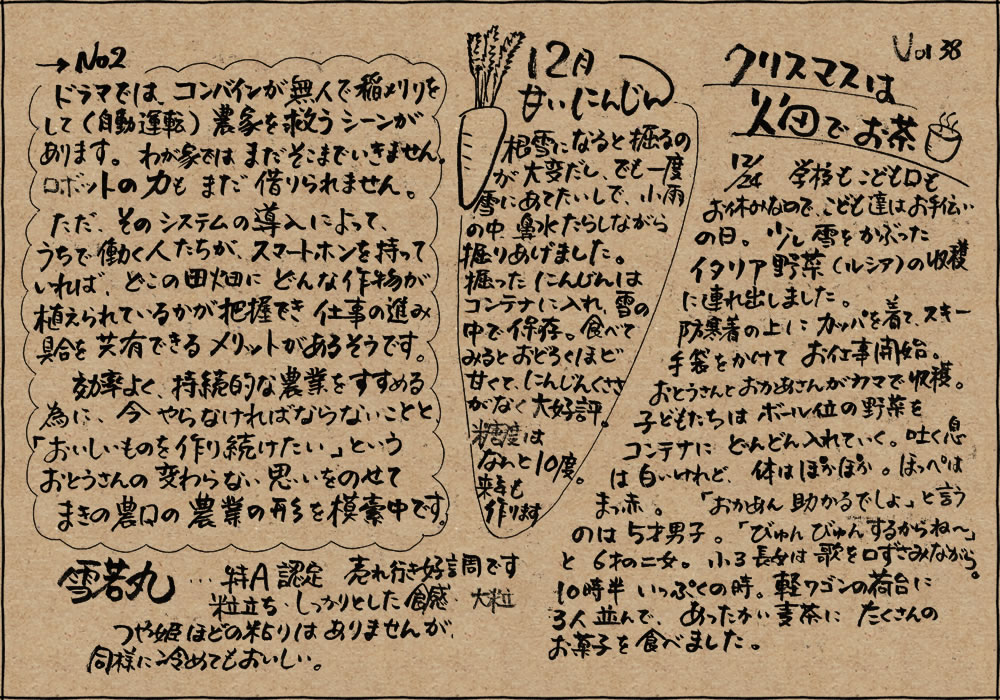 Vol 38
クリスマスは
畑でお茶
12/24 学校もこども口も
お休みなので、こども達はお手伝い
の日。少し雪をかぶった
イタリア野菜(ルシア)の収穫
に連れ出しました。
防寒着の上にカッパを着て、スキー
手袋をかけて お仕事開始。
おとうさんとおかあさんがカマで収穫。
子どもたちは ボール位の野菜を
コンテナに どんどん入れていく。吐く息
は白いけれど、体はぽかぽか。ほっぺは
まっ赤。「おかあさん 助かるでしょ」と言う
のは5才男子。「びゅんびゅんするからね〜」
と 6才の二女。小3長女は 歌を口ずさみながら。
10時半 いっぷくの時。軽ワゴンの荷台に
3人並んで、あったかい麦茶に たくさんの
お菓子を食べました。
12月
甘いにんじん
根雪になると掘るの
が大変だし、でも一度
雪にあてたいしで、小雨
の中 鼻水たらしながら
掘りあげました。
掘ったにんじんは
コンテナに入れ、雪の
中で保存。食べて
みるとおどろくほど
甘くて、にんじんくささ
がなく大好評。
糖度は
なんと10度。
来年も
作ります
→No2
ドラマでは、コンバインが無人で稲刈りを
して(自動運転)農家を救うシーンが
あります。わが家ではまだそこまでいきません。
ロボットの力も まだ 借りられません。
ただ、そのシステムの導入によって、
うちで働く人たちが、スマートホンを持って
いれば、どこの田畑に どんな作物が
植えられているかが把握でき 仕事の進み
具合を共有できる メリットがあるそうです。
効率よく、持続的な農業をすすめる
為に、今 やらなければならないことと
「おいしいものを作り続けたい」という
おとうさんの変わらない思いをのせて
まきの農口の農業の形を模索中です。
雪若丸 … 特A認定 売れ行き好調です
粒立ち・しっかりとした食感 大粒
つや姫ほどの粘りはありませんが、
同様に冷めてもおいしい。